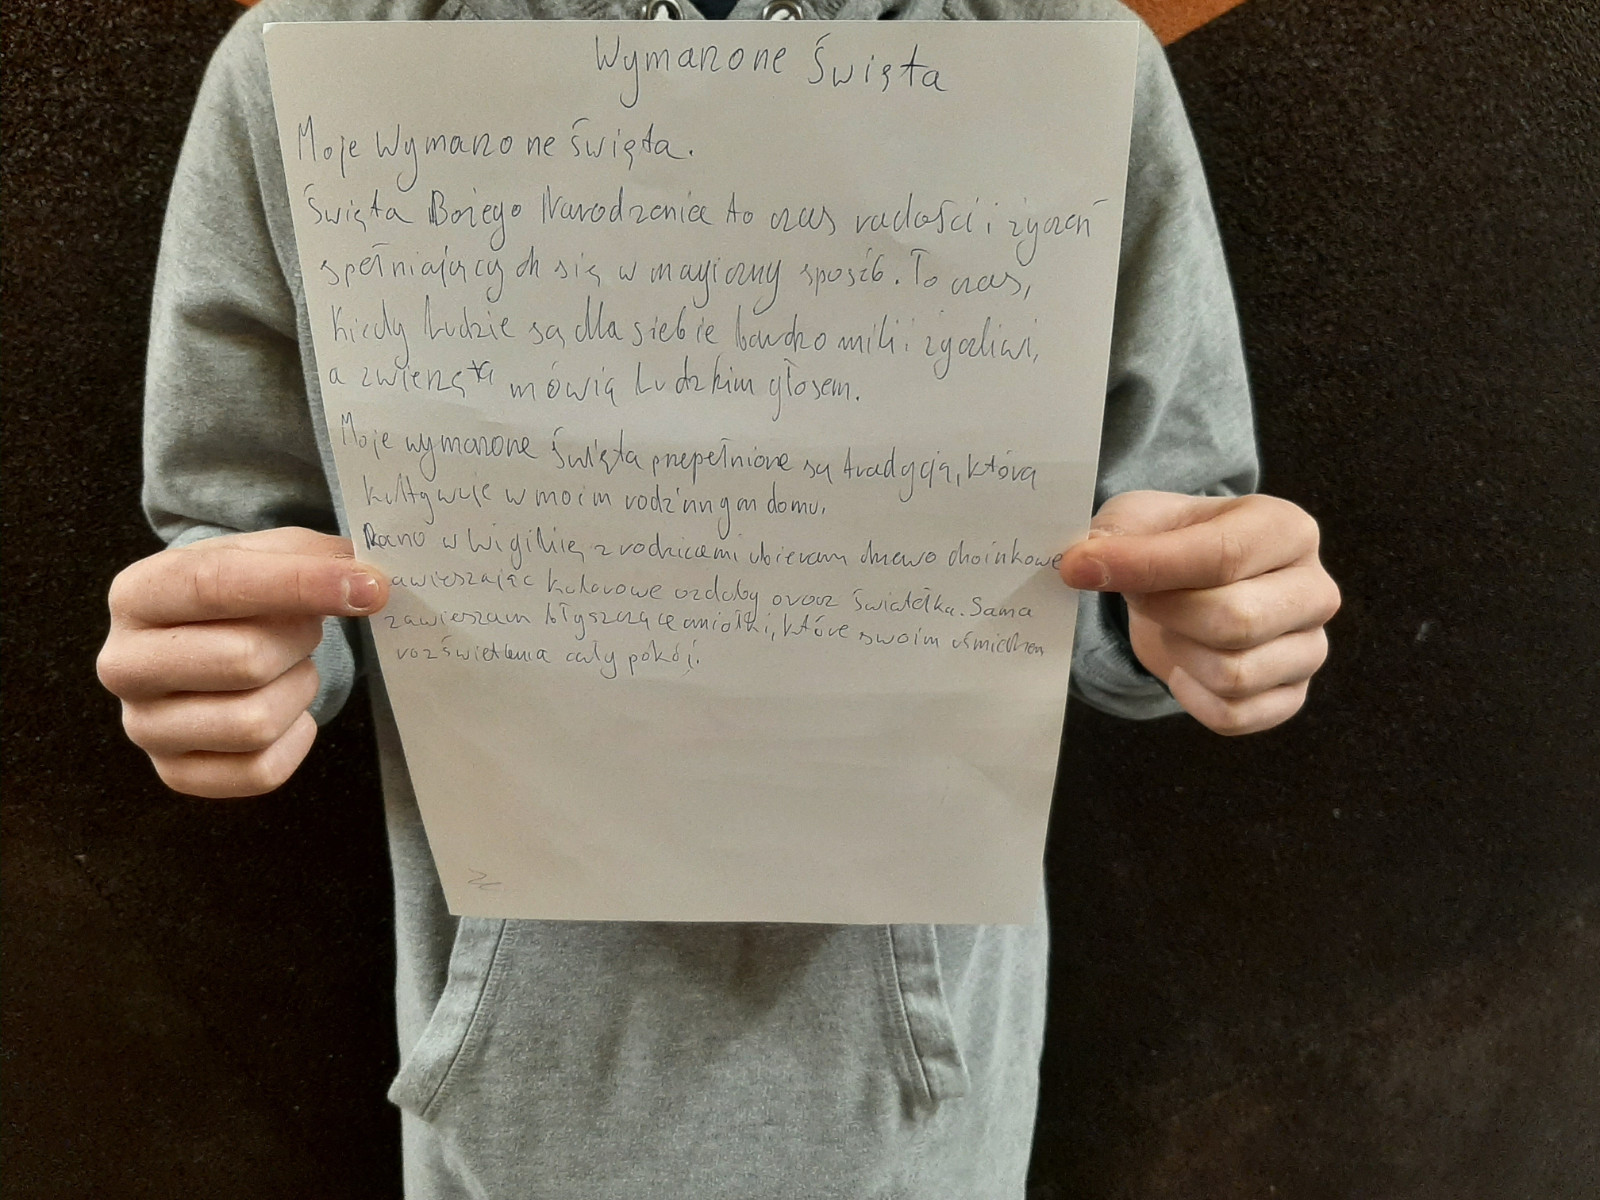 Wymarzone Święta
Moje Wymarzone święta.
Święta Bożego Narodzenia to czas radości i życzeń
spełniających się w magiczny sposób. To czas,
kiedy ludzie są dla siebie bardzo mili i życzliwi,
a zwierzęta mówią ludzkim głosem.
Moje wymarzone święta przepełnione są tradycją, którą
kultywuje w moim rodzinnym domu.
Rano w Wigilię z rodzicami ubieram drzewo choinkowe
zawieszając kolorowe ozdoby oraz światełka. Sama
zawieszam błyszczące aniołki, które swoim uśmiechem
rozświetlenia cały pokój.